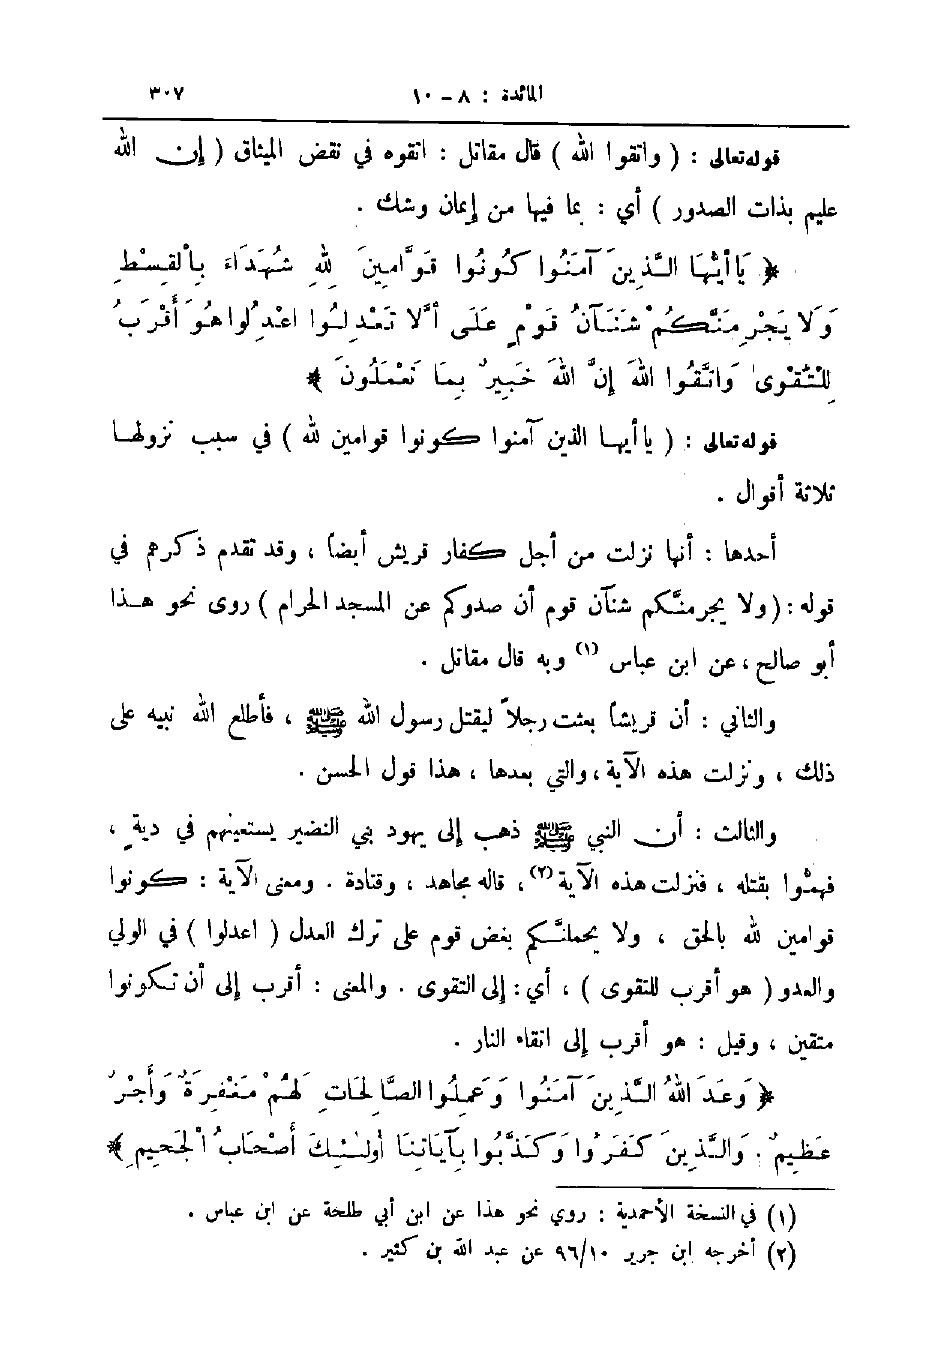 المائدة : ٨ - ١٠
٣٠٧
قوله تعالى : ( واتقوا الله ) قال مقاتل : اتقوه في نقض الميثاق ( إن الله
عليم بذات الصدور ) أي : بما فيها من إيمان وشك .
﴿ يَا أَيُّهَا الَّذِينَ آمَنُوا كُونُوا قَوَّامِينَ لِلهِ شُهَدَاءَ بِالْقِسْطِ
وَلَا يَجْرِمَنَّكُمْ شَنَآنُ قَوْمٍ عَلَى أَلَّا تَعْدِلُوا اعْدِلُوا هُوَ أَقْرَبُ
لِلتَّقْوَى وَاتَّقُوا اللهَ إِنَّ اللهَ خَبِيرٌ بِمَا تَعْمَلُونَ ﴾
قوله تعالى : ( يا أيها الذين آمنوا كونوا قوامين لله ) في سبب نزولها
ثلاثة أقوال .
أحدها : أنها نزلت من أجل كفار قريش أيضاً ، وقد تقدم ذكرهم في
قوله : ( ولا يجرمنَّكم شنآن قوم أن صدوكم عن المسجد الحرام ) روى نحو هذا
أبو صالح ، عن ابن عباس (١) وبه قال مقاتل .
والثاني : أن قريشاً بعثت رجلاً ليقتل رسول الله ﷺ ، فأطلع الله نبيه على
ذلك ، ونزلت هذه الآية ، والتي بعدها ، هذا قول الحسن .
والثالث : أن النبي ﷺ ذهب إلى يهود بني النضير يستعينهم في ديةٍ ،
فهمُّوا بقتله ، فنزلت هذه الآية (٢) ، قاله مجاهد ، وقتادة . ومعنى الآية : كونوا
قوامين لله بالحق ، ولا يحملنَّكم بغض قوم على ترك العدل ( اعدلوا ) في الولي
والعدو ( هو أقرب للتقوى ) ، أي : إلى التقوى . والمعنى : أقرب إلى أن تكونوا
متقين ، وقيل : هو أقرب إلى اتقاء النار .
﴿ وَعَدَ اللهُ الَّذِينَ آمَنُوا وَعَمِلُوا الصَّالِحَاتِ لَهُمْ مَغْفِرَةٌ وَأَجْرٌ
عَظِيمٌ . وَالَّذِينَ كَفَرُوا وَكَذَّبُوا بِآيَاتِنَا أُولَئِكَ أَصْحَابُ الْجَحِيمِ ﴾
(١) في النسخة الأحمدية : روي نحو هذا عن ابن أبي طلحة عن ابن عباس .
(٢) أخرجه ابن جرير ٩٦/١٠ عن عبد الله بن كثير .